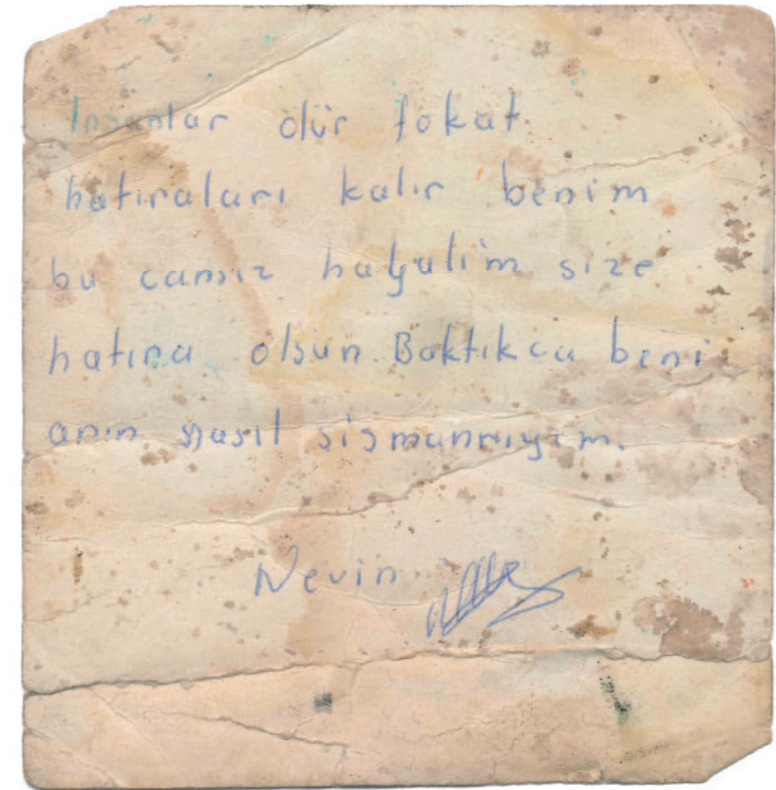 İnsanlar ölür fakat
hatıraları kalır benim
bu cansız hayalim size
hatıra olsun. Baktıkca beni
anın nasıl sismanmıyım.
Nevin